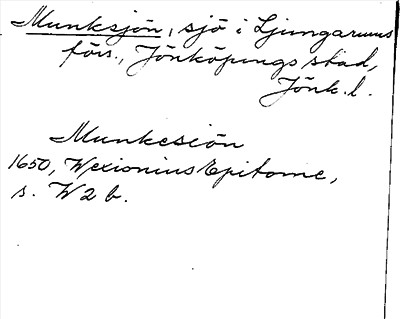 Munksjön, sjö i Ljungarums
förs., Jönköpings stad,
Jönk. l.
Munkesiön
1650, Wexionius Epitome,
s. W 2 b.